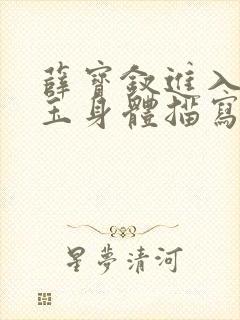 薛寶釵進入
玉身體描寫
星夢清河